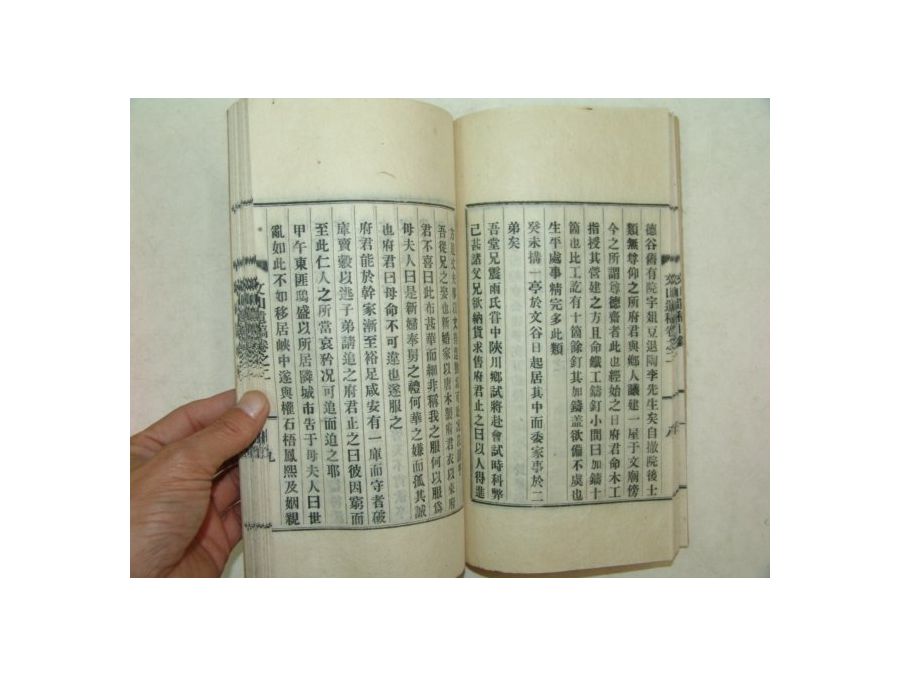 德谷舊有院宇俎豆退陶李先生矣自撤院後士
類無尊仰之所府君與鄉人議建一屋于文廟傍
今之所謂尊德齋者此也經始之日府君命木工
指授其營建之方且命鐵工鑄釘小間曰加鑄十
箇也比工訖有十箇餘釘其加鑄盖欲備不虞也
生平處事精完多此類
癸未搆一亭於文谷日起居其中而委家亭於二
弟矣
吾堂兄震雨氏嘗中陝川鄉試將赴會試時科弊
已甚諸父兄欲納貨求售府君止之曰以人得進
吾從兄之娶也新婚家以唐木製府君衣以來府
君不喜曰此布甚華而細非稱我之服何以服爲
母夫人曰是新婦奉舅之禮何華之嫌而孤其誠
也府君曰母命不可違也遂服之
府君能於幹家漸至裕足咸安有一庫而守者破
庫賣糓以逃子弟請追之府君止之曰彼因窮而
至此仁人之所當哀矜况可追而迫之耶
甲午東匪鴟盛以所居隣城市告于母夫人曰世
亂如此不如移居峽中遂與權石梧鳳熙及姻親
文山遺稿卷之二
九